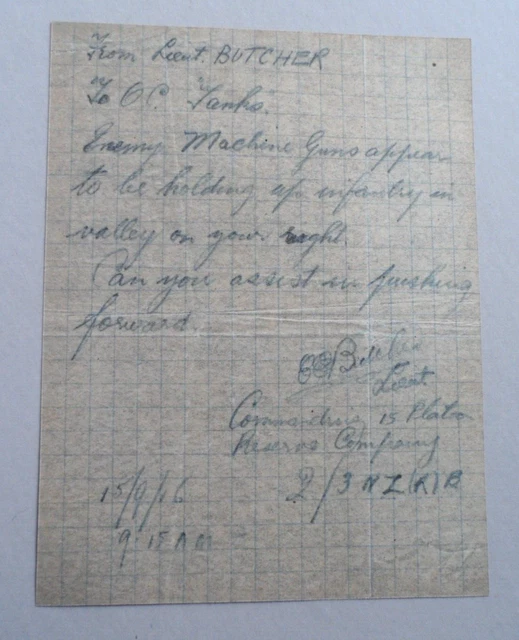 From Lieut. BUTCHER
To O.C. Tanks.
Enemy Machine Guns appear
to be holding up infantry in
valley on your right.
Can you assist in pushing
forward.
Butcher
Lieut
Commanding 15 Platoon
Reserve Company
15/9/16 2/3 N Z (R) B
9.15 AM